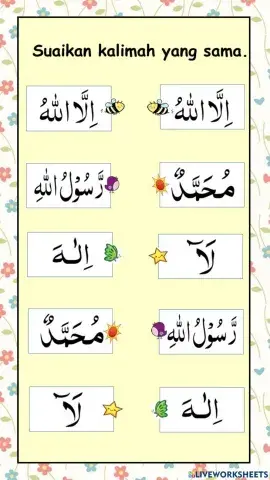 Suaikan kalimah yang sama.
اِلَّا اللهُ
اِلَّا اللهُ
رَّسُوْلُ اللهِ
مُحَمَّدٌ
اِلٰهَ
لَآ
مُحَمَّدٌ
رَّسُوْلُ اللهِ
لَآ
اِلٰهَ
LIVEWORKSHEETS